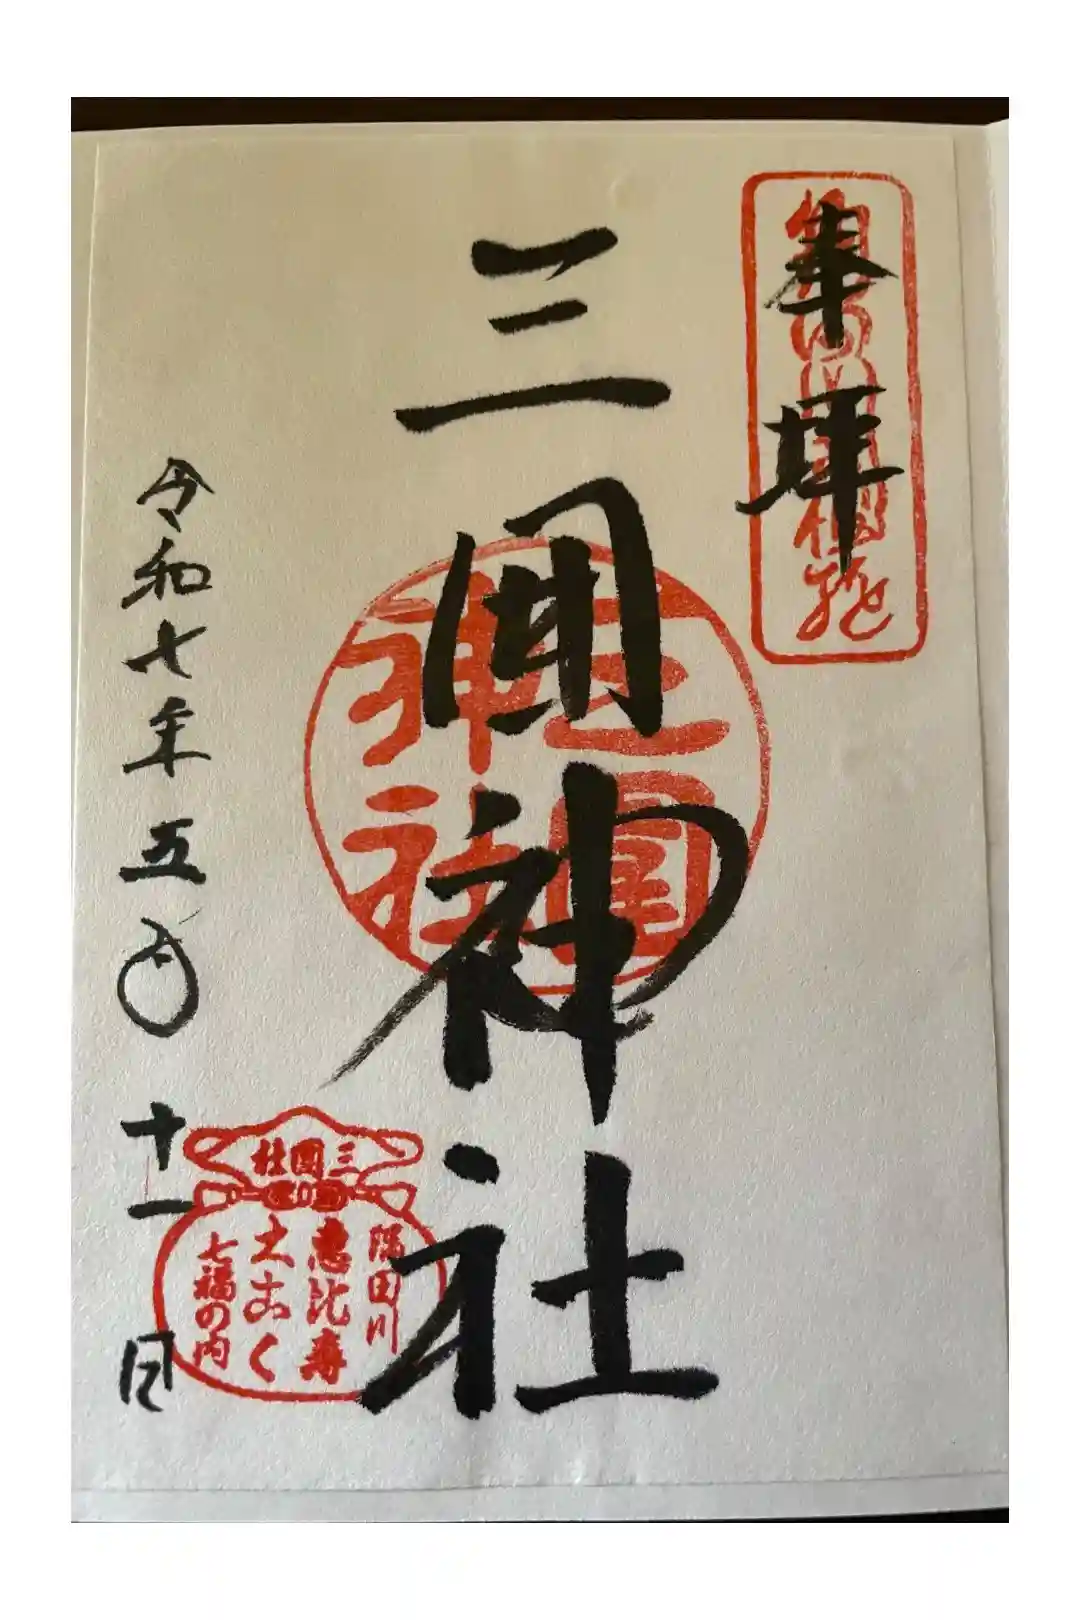 奉拝
三囲神社
三囲神社
三囲社
隅田川
恵比寿
大こく
七福の内
令和七年五月十一日